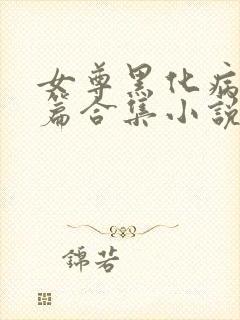 女尊黑化病
篇合集小說
錦若